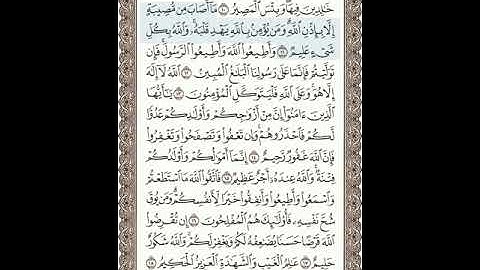 خَٰلِدِينَ فِيهَا وَبِئْسَ ٱلْمَصِيرُ ١٠ مَآ أَصَابَ مِن مُّصِيبَةٍ
إِلَّا بِإِذْنِ ٱللَّهِ وَمَن يُؤْمِنۢ بِٱللَّهِ يَهْدِ قَلْبَهُۥ وَٱللَّهُ بِكُلِّ
شَىْءٍ عَلِيمٌ ١١ وَأَطِيعُوا۟ ٱللَّهَ وَأَطِيعُوا۟ ٱلرَّسُولَ فَإِن
تَوَلَّيْتُمْ فَإِنَّمَا عَلَىٰ رَسُولِنَا ٱلْبَلَٰغُ ٱلْمُبِينُ ١٢ ٱللَّهُ لَآ إِلَٰهَ
إِلَّا هُوَ وَعَلَى ٱللَّهِ فَلْيَتَوَكَّلِ ٱلْمُؤْمِنُونَ ١٣ يَٰٓأَيُّهَا
ٱلَّذِينَ ءَامَنُوٓا۟ إِنَّ مِنْ أَزْوَٰجِكُمْ وَأَوْلَٰدِكُمْ عَدُوًّا
لَّكُمْ فَٱحْذَرُوهُمْ وَإِن تَعْفُوا۟ وَتَصْفَحُوا۟ وَتَغْفِرُوا۟
فَإِنَّ ٱللَّهَ غَفُورٌ رَّحِيمٌ ١٤ إِنَّمَآ أَمْوَٰلُكُمْ وَأَوْلَٰدُكُمْ
فِتْنَةٌ وَٱللَّهُ عِندَهُۥٓ أَجْرٌ عَظِيمٌ ١٥ فَٱتَّقُوا۟ ٱللَّهَ مَا ٱسْتَطَعْتُمْ
وَٱسْمَعُوا۟ وَأَطِيعُوا۟ وَأَنفِقُوا۟ خَيْرًا لِّأَنفُسِكُمْ وَمَن يُوقَ
شُحَّ نَفْسِهِۦ فَأُو۟لَٰٓئِكَ هُمُ ٱلْمُفْلِحُونَ ١٦ إِن تُقْرِضُوا۟
ٱللَّهَ قَرْضًا حَسَنًا يُضَٰعِفْهُ لَكُمْ وَيَغْفِرْ لَكُمْ وَٱللَّهُ شَكُورٌ
حَلِيمٌ ١٧ عَٰلِمُ ٱلْغَيْبِ وَٱلشَّهَٰدَةِ ٱلْعَزِيزُ ٱلْحَكِيمُ ١٨